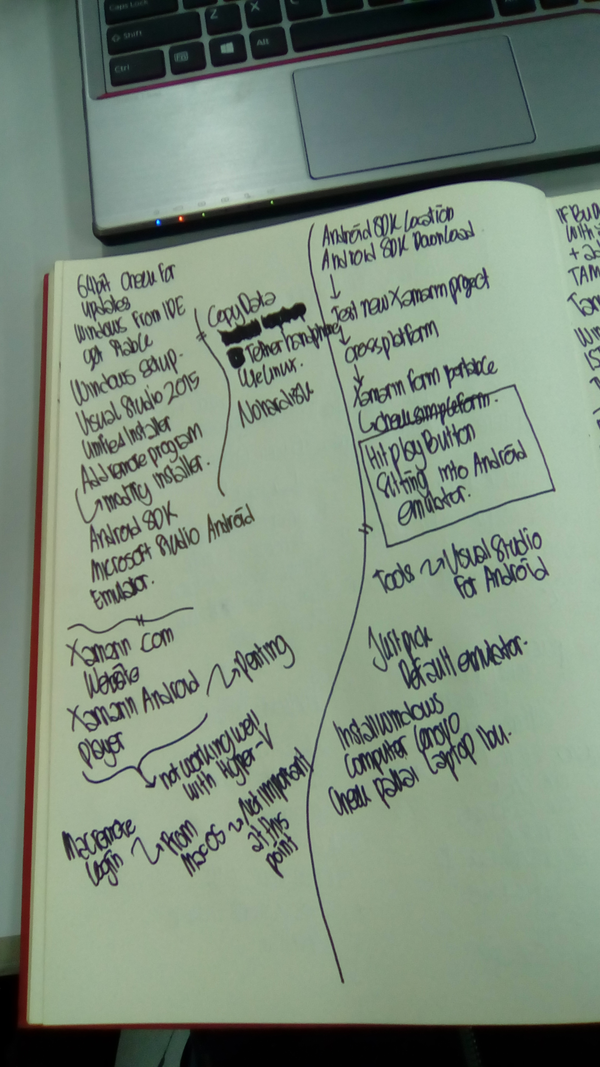 Caps Lock
Shift
Z
X
C
Ctrl
Alt
64bit Check For
updates
Windows From IDE
get stable
Windows setup.
Visual Studio 2015
unified installer
Add remote program
modify installer.
Android SDK
Microsoft Studio Android
Emulator.
Xamarin com
Website
Xamarin Android
player
Penting
not working well
with Hyper-V
Mac remote
Login
From
MacOS
Not important
at this
point
Copy Data
Tether handphone
We Linux.
No hardisk
Android SDK Location
Android SDK Download
Test new Xamarin project
Cross platform
Xamarin form portable
check simple form.
Hit play Button
sitting into Android
emulator.
Tools
Visual Studio
For Android
Just pick
Default emulator.
Install windows
computer Lenovo
Check pakai Laptop Ibu.
IF
With
TAM